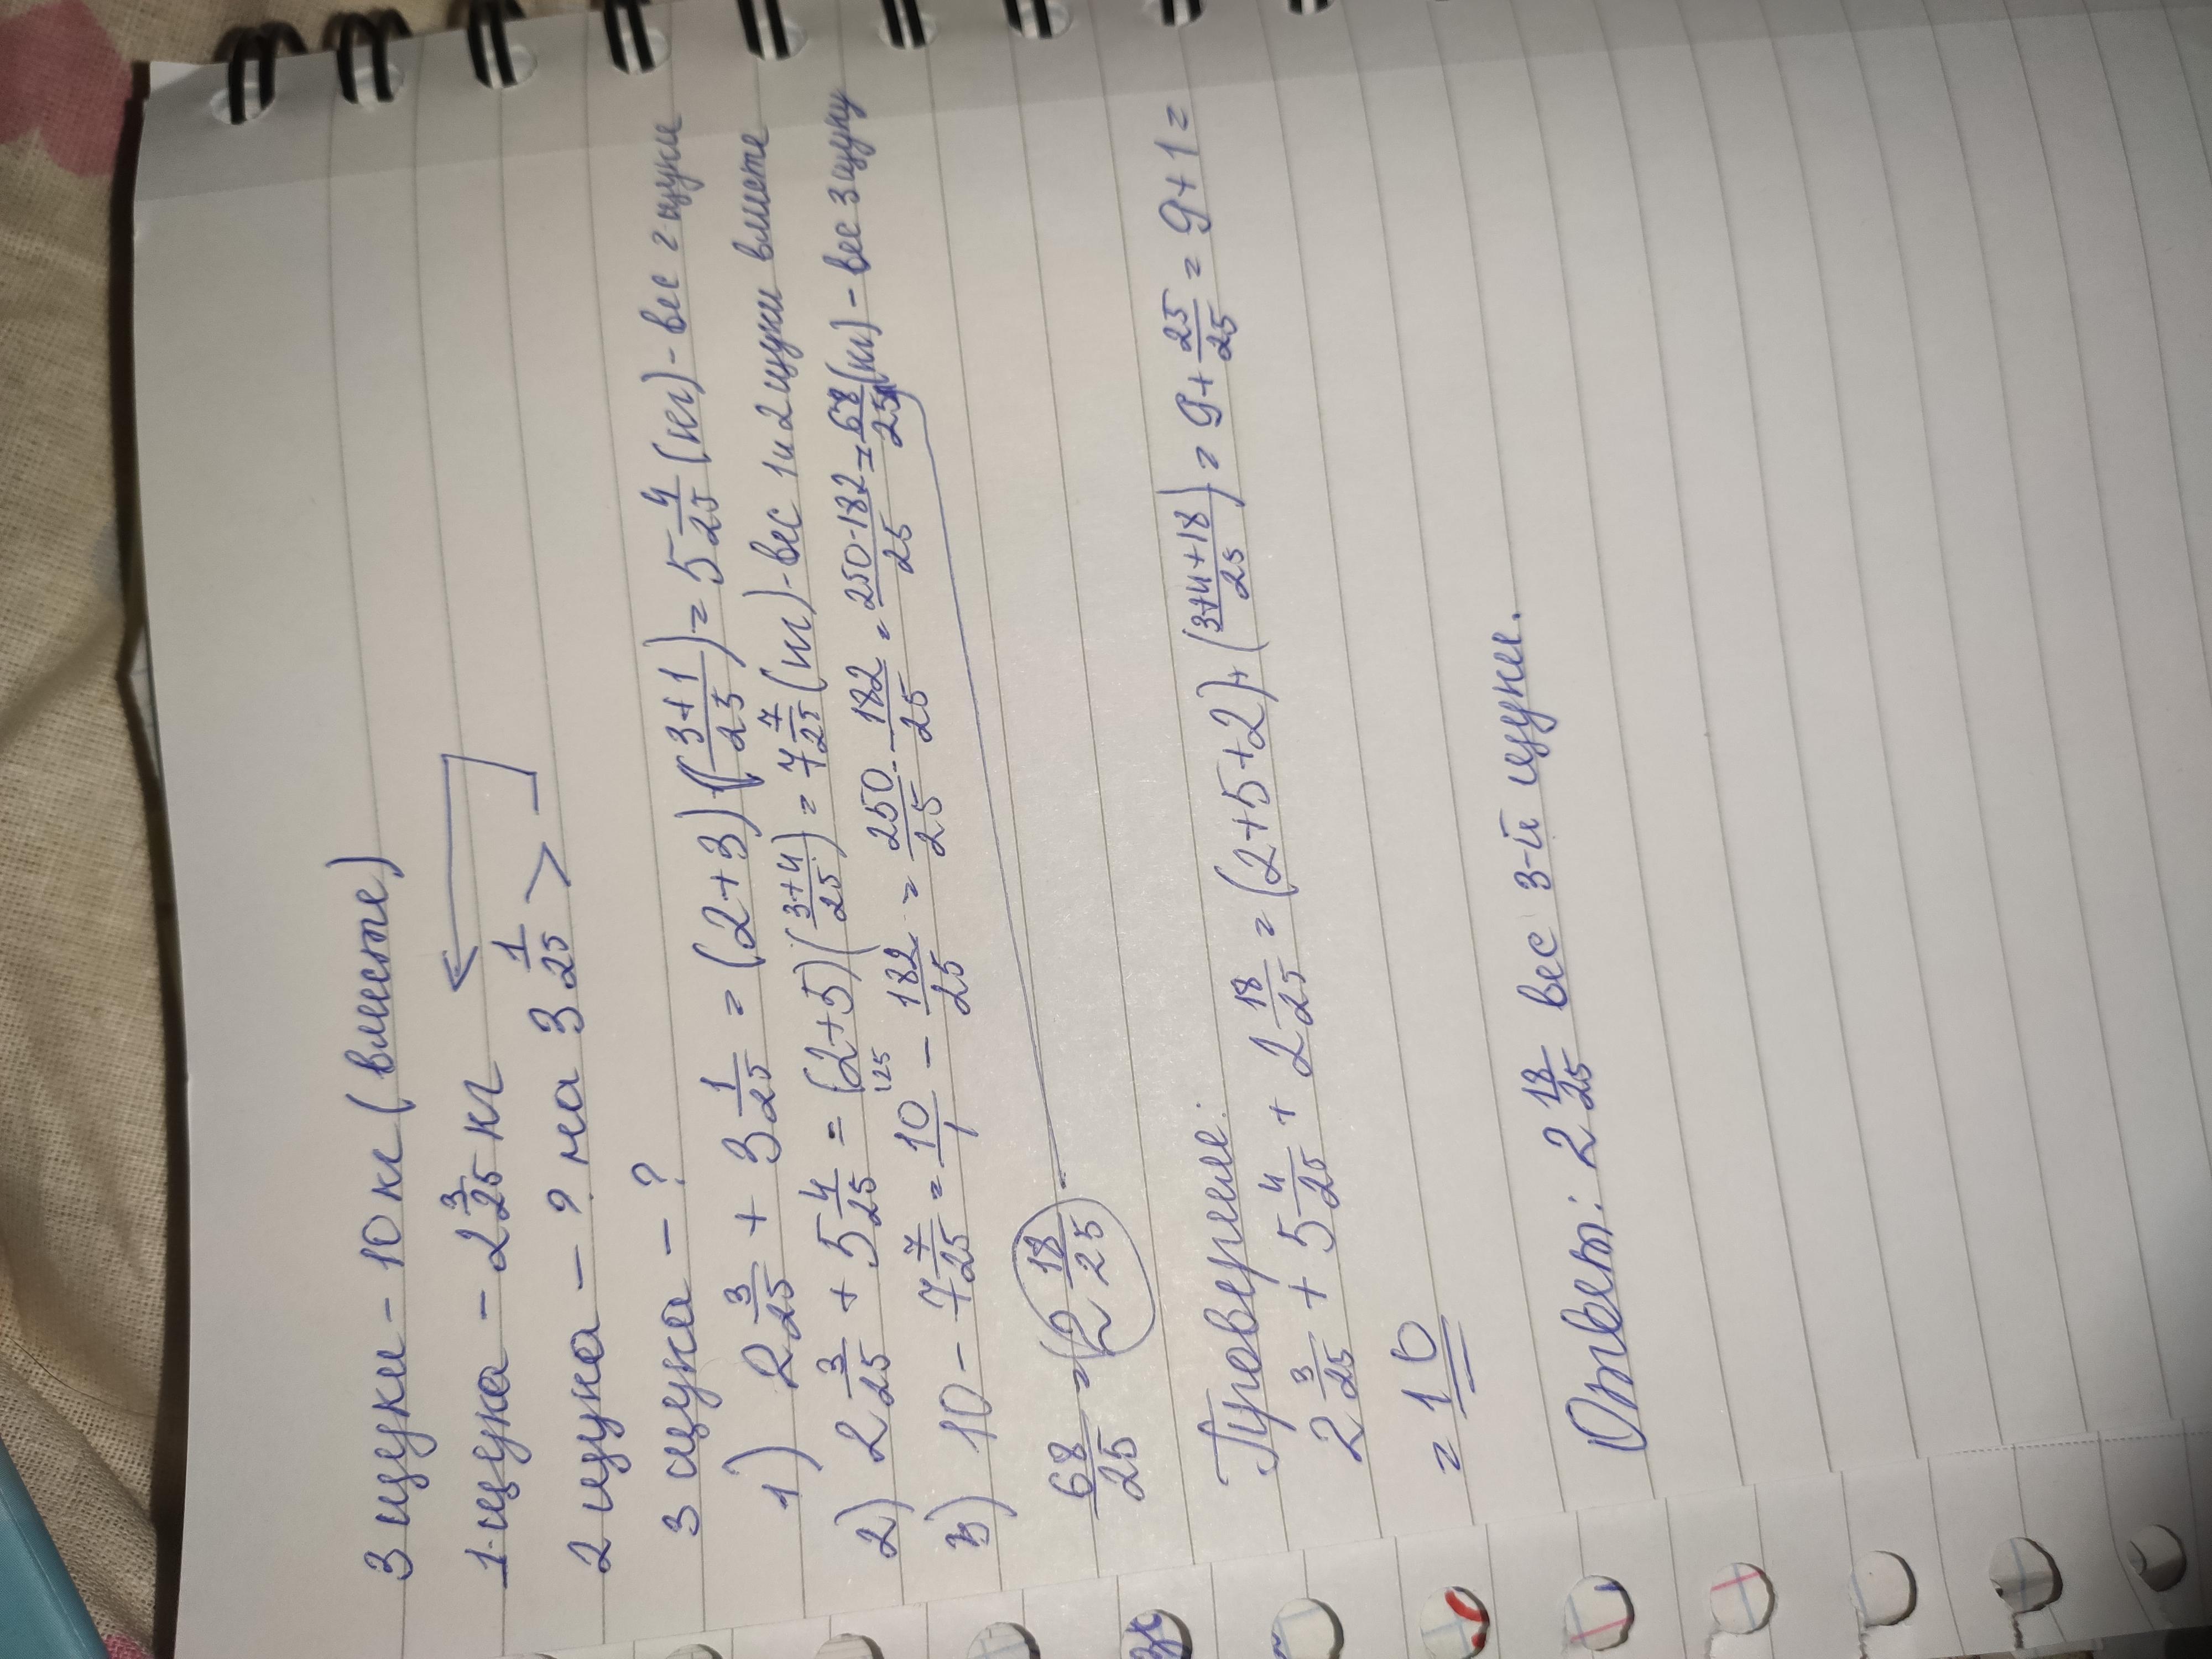 3 щуки - 10 кг (вместе)
1 щука - 2 3/25 кг
2 щука - ? на 3 1/25 >
3 щука - ?
1) 2 3/25 + 3 1/25 = (2+3)+(3+1/25) = 5 4/25 (кг) - вес 2 щуки
2) 2 3/25 + 5 4/25 = (2+5)(3+4/25) = 7 7/25 (кг) - вес 1 и 2 щуки вместе
3) 10 - 7 7/25 = 10/1 \25 - 182/25 = 250/25 - 182/25 = 250-182/25 = 68/25 (кг) - вес 3 щуку
68/25 = 2 18/25
Проверяем:
2 3/25 + 5 4/25 + 2 18/25 = (2+5+2)+(3+4+18/25) = 9+25/25 = 9+1 =
= 10
Ответ: 2 18/25 вес 3-й щуки.